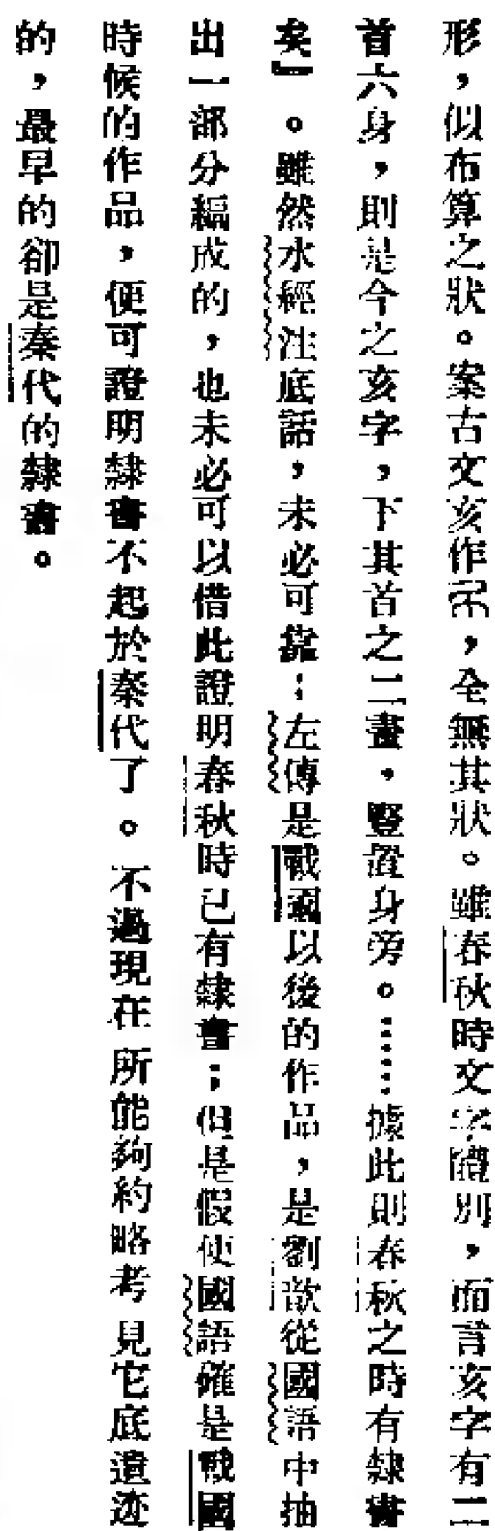 形，似布算之狀。案古文亥作𠀅，全無其狀。雖春秋時文字體別，而言亥字有二
首六身，則是今之亥字，下其首之二畫，豎置身旁。……據此則春秋之時有隸書
矣』。雖然水經注底話，未必可靠；左傳是戰國以後的作品，是劉歆從國語中抽
出一部分編成的，也未必可以借此證明春秋時已有隸書；但是假使國語確是戰國
時候的作品，便可證明隸書不起於秦代了。不過現在所能夠約略考見它底遺迹
的，最早的卻是秦代的隸書。